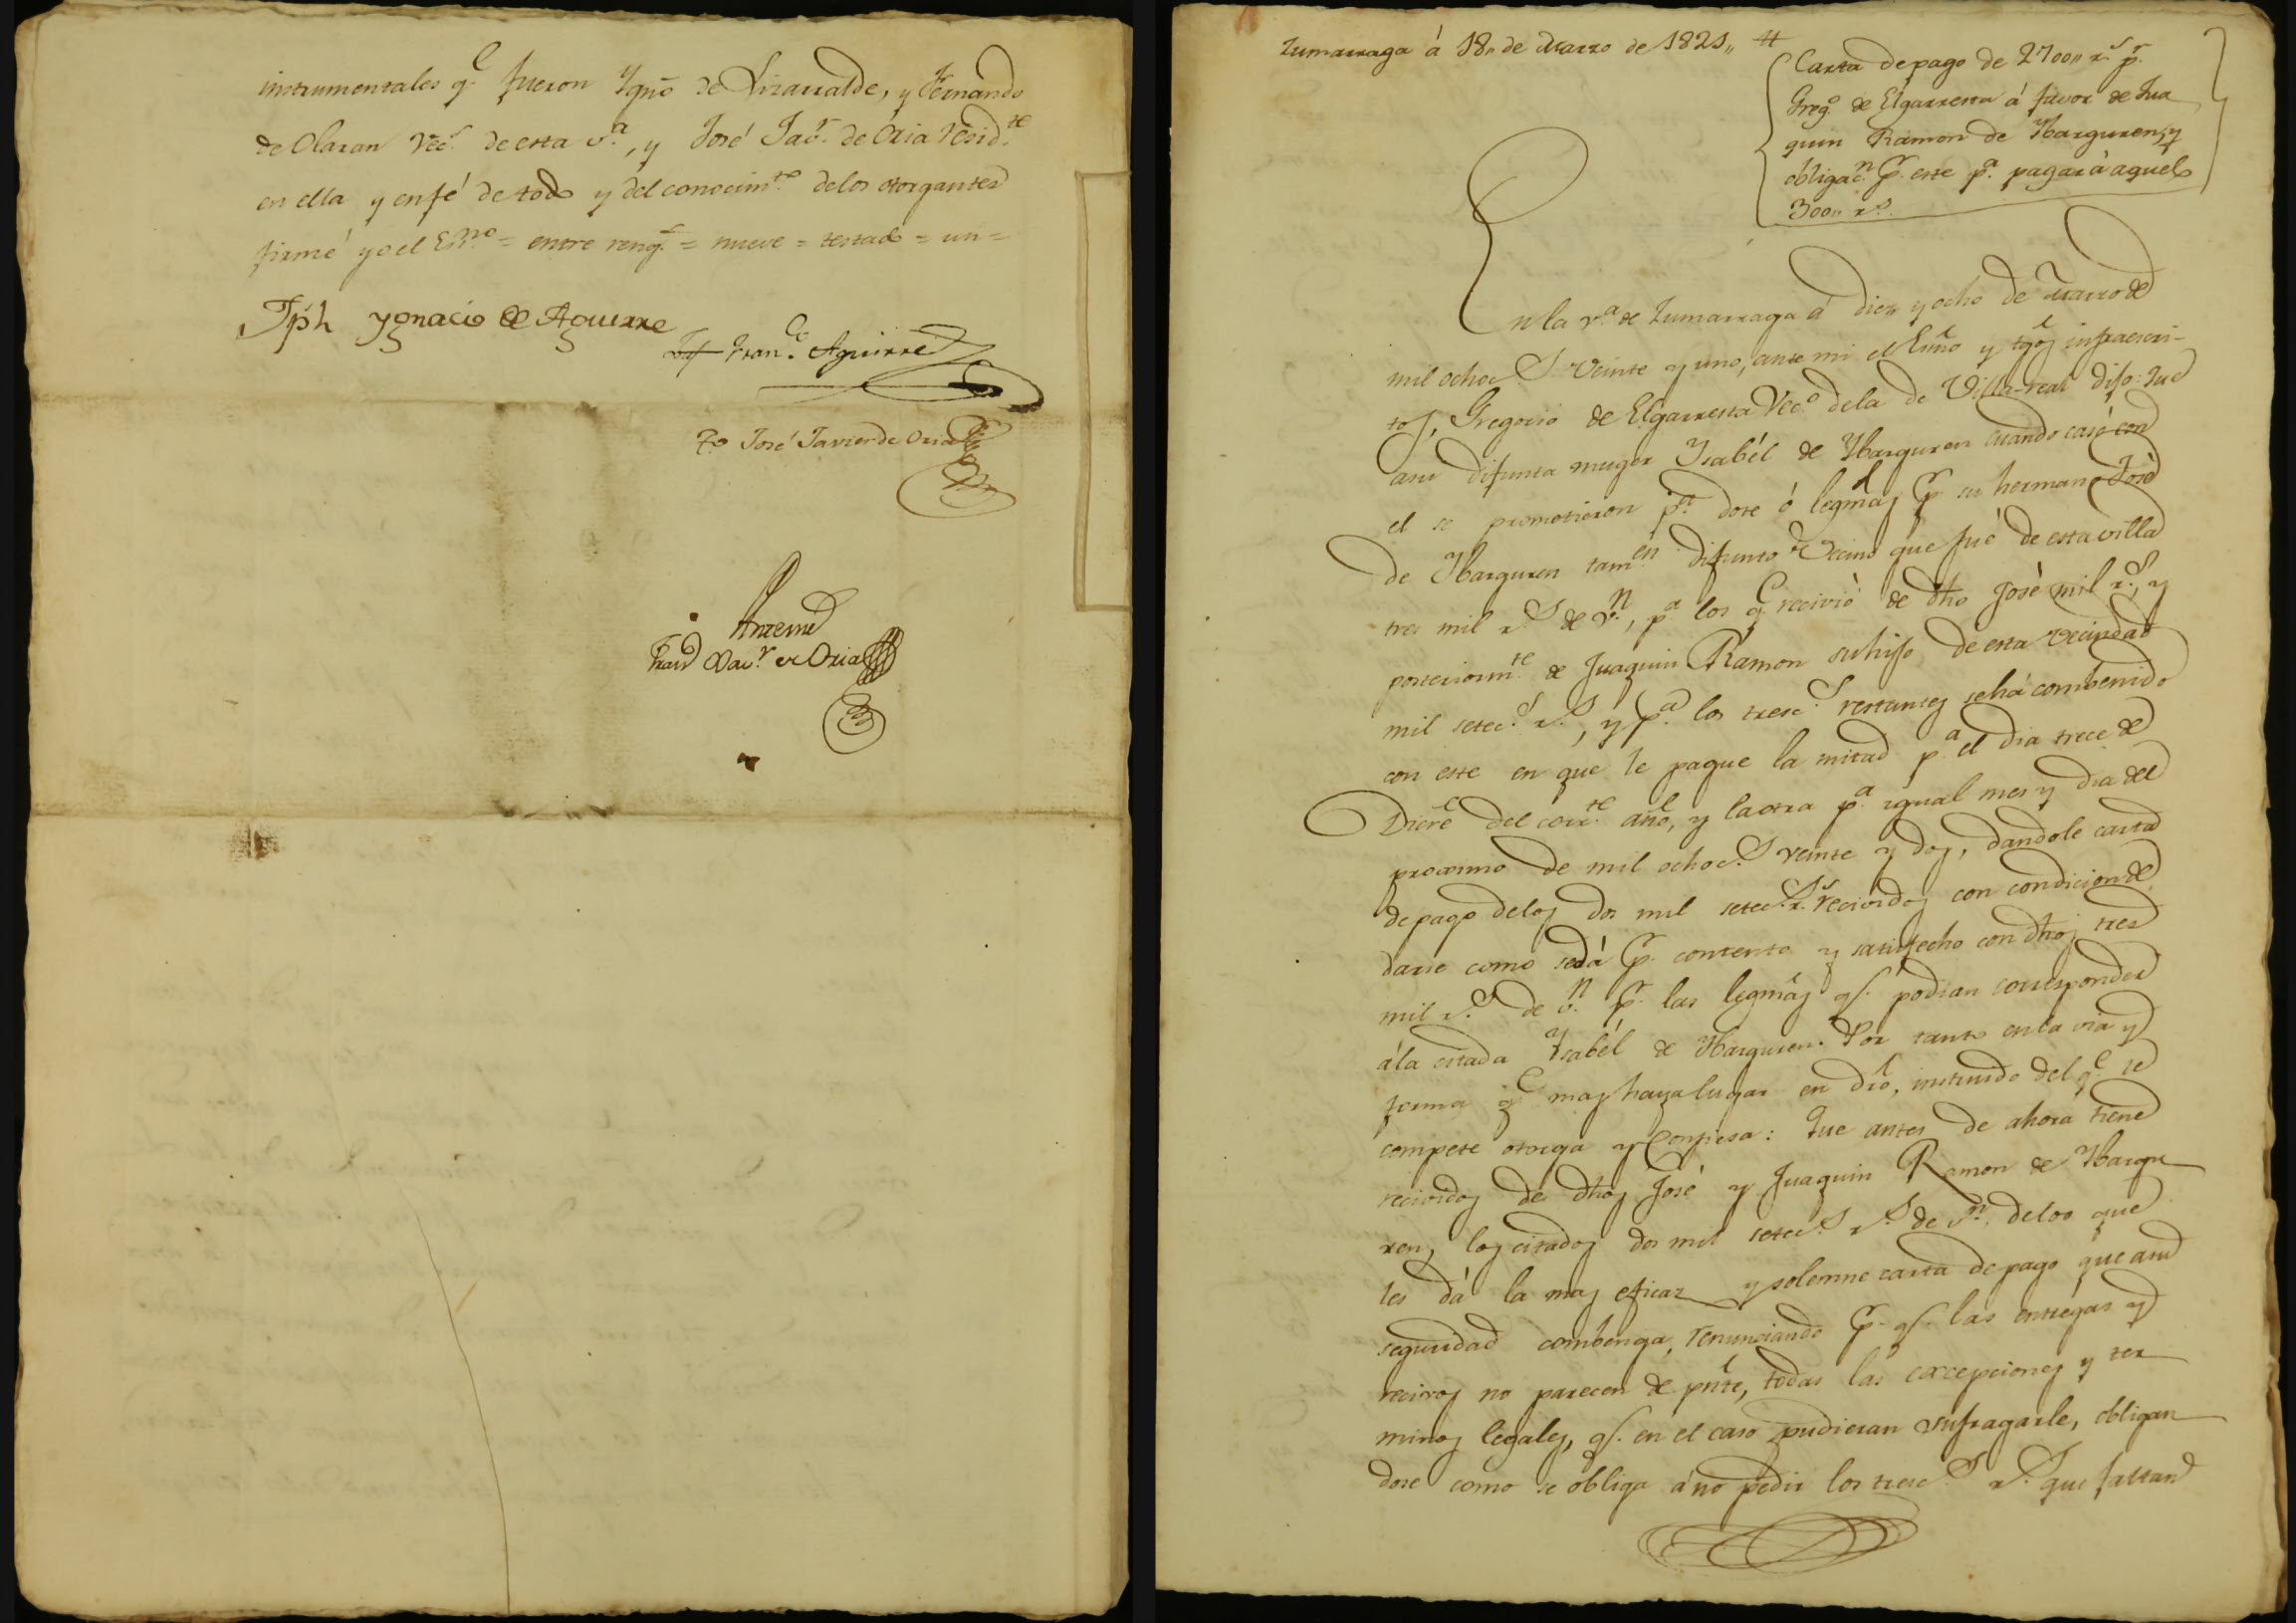 instrumentales q.e fueron Ygn.o de Lizarralde, y Fernando
de Olaran Vec.s de esta v.a, y José Jav.r de Oria resid.te
en ella y en fé de todo y del conocim.to de los otorgantes
firmé yo el Es.no = entre reng.s = nueve = testado = un =
Jph Ygnacio de Aguirre
Fran.co Aguirre
T.o José Javier de Oria
Antemi
Fran.co Xav.r de Oria
Zumarraga á 18,, de Marzo de 1821,,
Carta de pago de 2700,, r.s p.r
Greg.o de Elgarresta á favor de Jua
quin Ramon de Ybarguren, y
obligac.n p.r este p.a pagar à aquel
300,, r.s
En la v.a de Zumarraga á diez y ocho de Marzo de
mil ochoc.s veinte y uno, ante mi el Esno y tgos infraescri-
tos, Gregorio de Elgarresta Vec.o de la de Villa-real dijo: Que
a su difunta muger Ysabél de Ybarguren cuando casó con
el se prometieron p.a dote ó legmas p.r su hermano José
de Ybarguren tamen difunto Vecino que fué de esta villa
tres mil r.s de v.n, p.a los q.e recivió de dho José mil r.s, y
posteriorm.te de Juaquin Ramon su hijo de esta vecindad
mil setec.s r.s, y p.a los tresc.s restantes se há combenido
con este en que le pague la mitad p.a el dia trece de
Dicre del corr.te año, y la otra p.a igual mes y dia del
procsimo de mil ochoc.s veinte y dos, dandole carta
de pago de los dos mil setec.s r.s recividos con condicion de
darse como se dá p.r contento y satisfecho con dhos tres
mil r.s de v.n p.r las legmas q.e podian corresponder
á la citada Ysabél de Ybarguren. Por tanto en la via y
forma q.e mas haya lugar en dro, instruido del q.e le
compete otorga y confiesa: Que antes de ahora tiene
recividos de dhos José y Juaquin Ramon de Ybargu
ren, los citados dos mil setec.s r.s de v.n, de los que
les dá la mas eficaz y solemne carta de pago que a su
seguridad combenga, renunciando p.r q.e las entregas y
recivos no parecen de pnte, todas las excepciones y ter
minos legales, q.e en el caso pudieran sufragarle, obligan
dose como se obliga á no pedir los tresc.s r.s que faltan